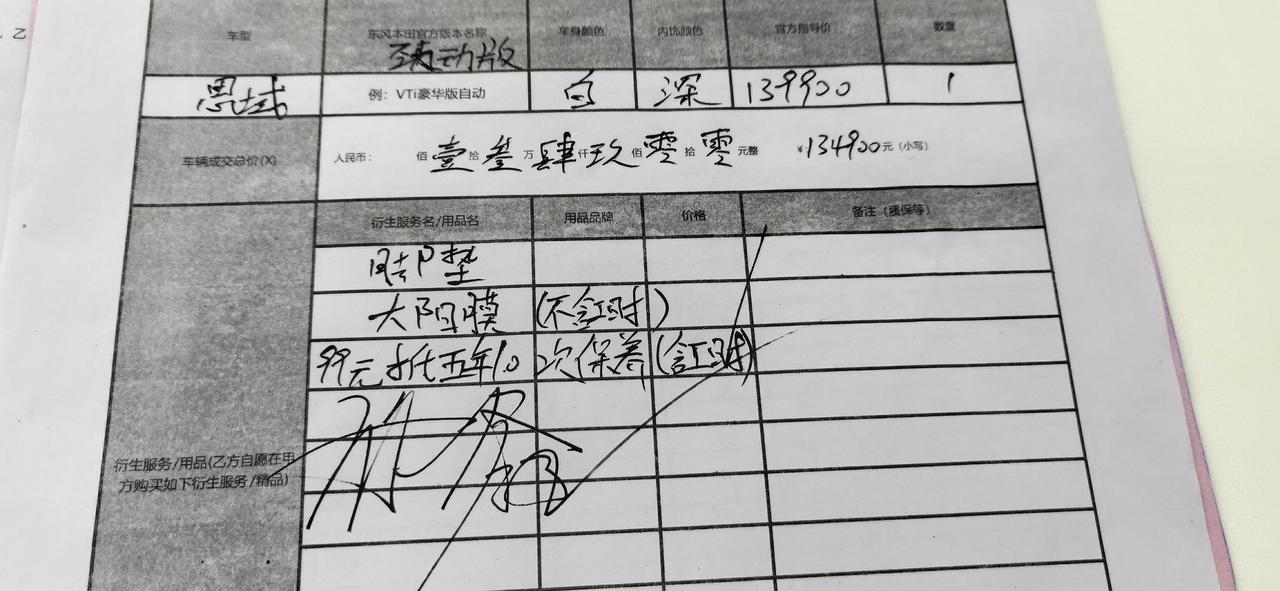 乙
车型 东风本田官方版本名称 车身颜色 内饰颜色 官方指导价 数量
劲动版
思域 例：VTi豪华版自动 白 深 139900 1
车辆成交总价(X) 人民币： 佰 壹 拾 叁 万 肆 仟 玖 佰 零 拾 零 元整 ¥134900元（小写）
衍生服务名/用品名 用品品牌 价格 备注（质保等）
脚垫
太阳膜 (不含工时)
99元抵五年10次保养(含工时)
衍生服务/用品(乙方自愿在甲
方购买如下衍生服务/精品)